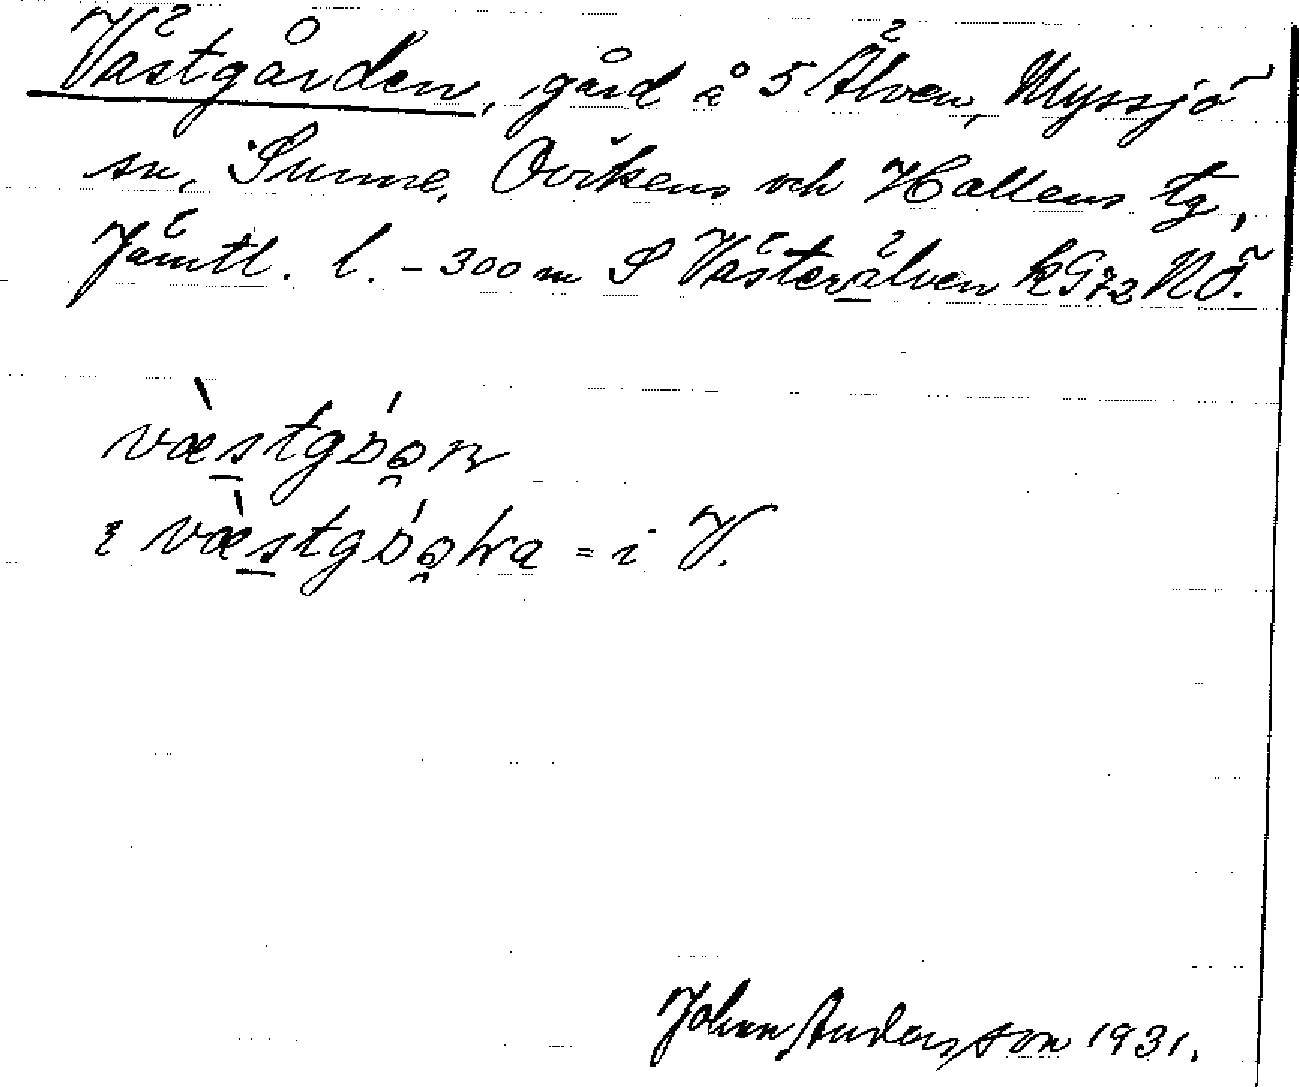 Västgården, gård å 5 Älven, Myssjö
sn, Sunne, Ovikens och Hallens tg,
Jämtl. l. - 300 m S Västerälven kG72 NÖ.
= i V.
Johan Andersson 1931.